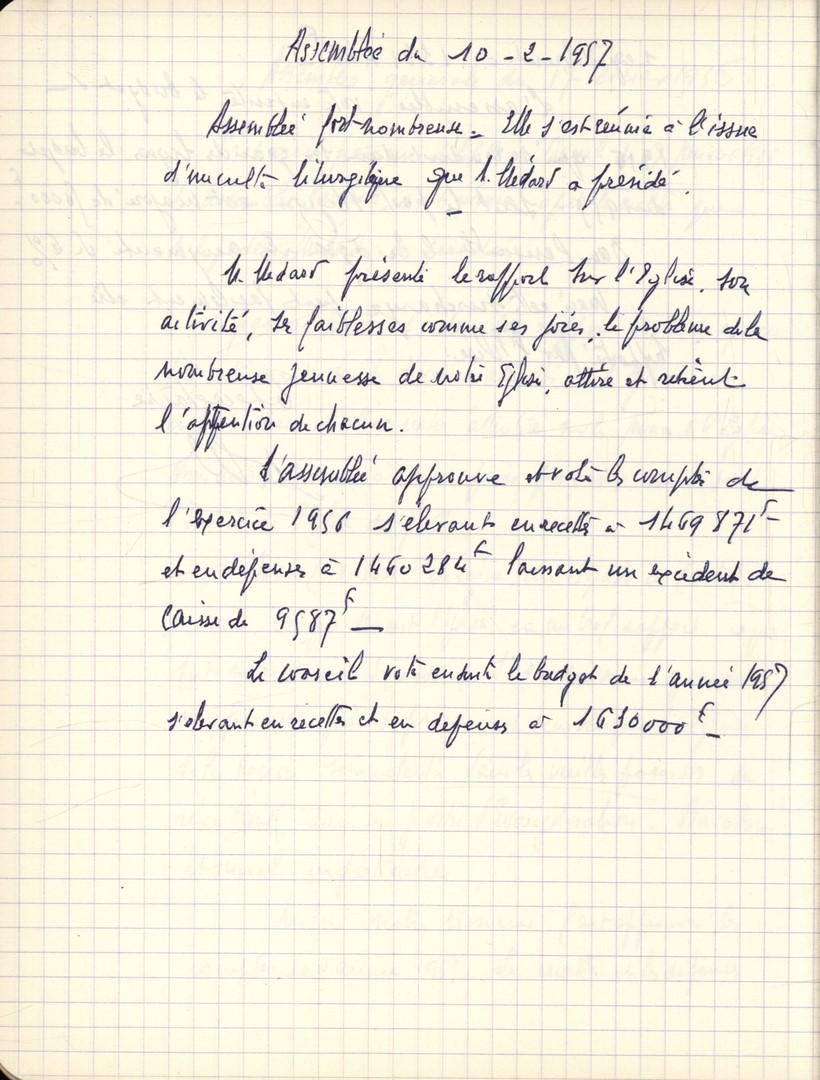 Assemblée du 10 - 2 - 1957
Assemblée fort nombreuse. Elle s'est réunie à l'issue
d'un culte liturgique que M. Médard a présidé.
M. Médard présente le rapport sur l'Eglise, son
activité, ses faiblesses comme ses joies, le problème de la
nombreuse jeunesse de notre Eglise, attire et retient
l'attention de chacun.
L'assemblée approuve et vote les comptes de
l'exercice 1956 s'élevant en recettes à 1469871 F
et en dépenses à 1460284 F laissant un excédent de
caisse de 9587 F
Le conseil vote ensuite le budget de l'année 1957
s'élevant en recettes et en dépenses à F